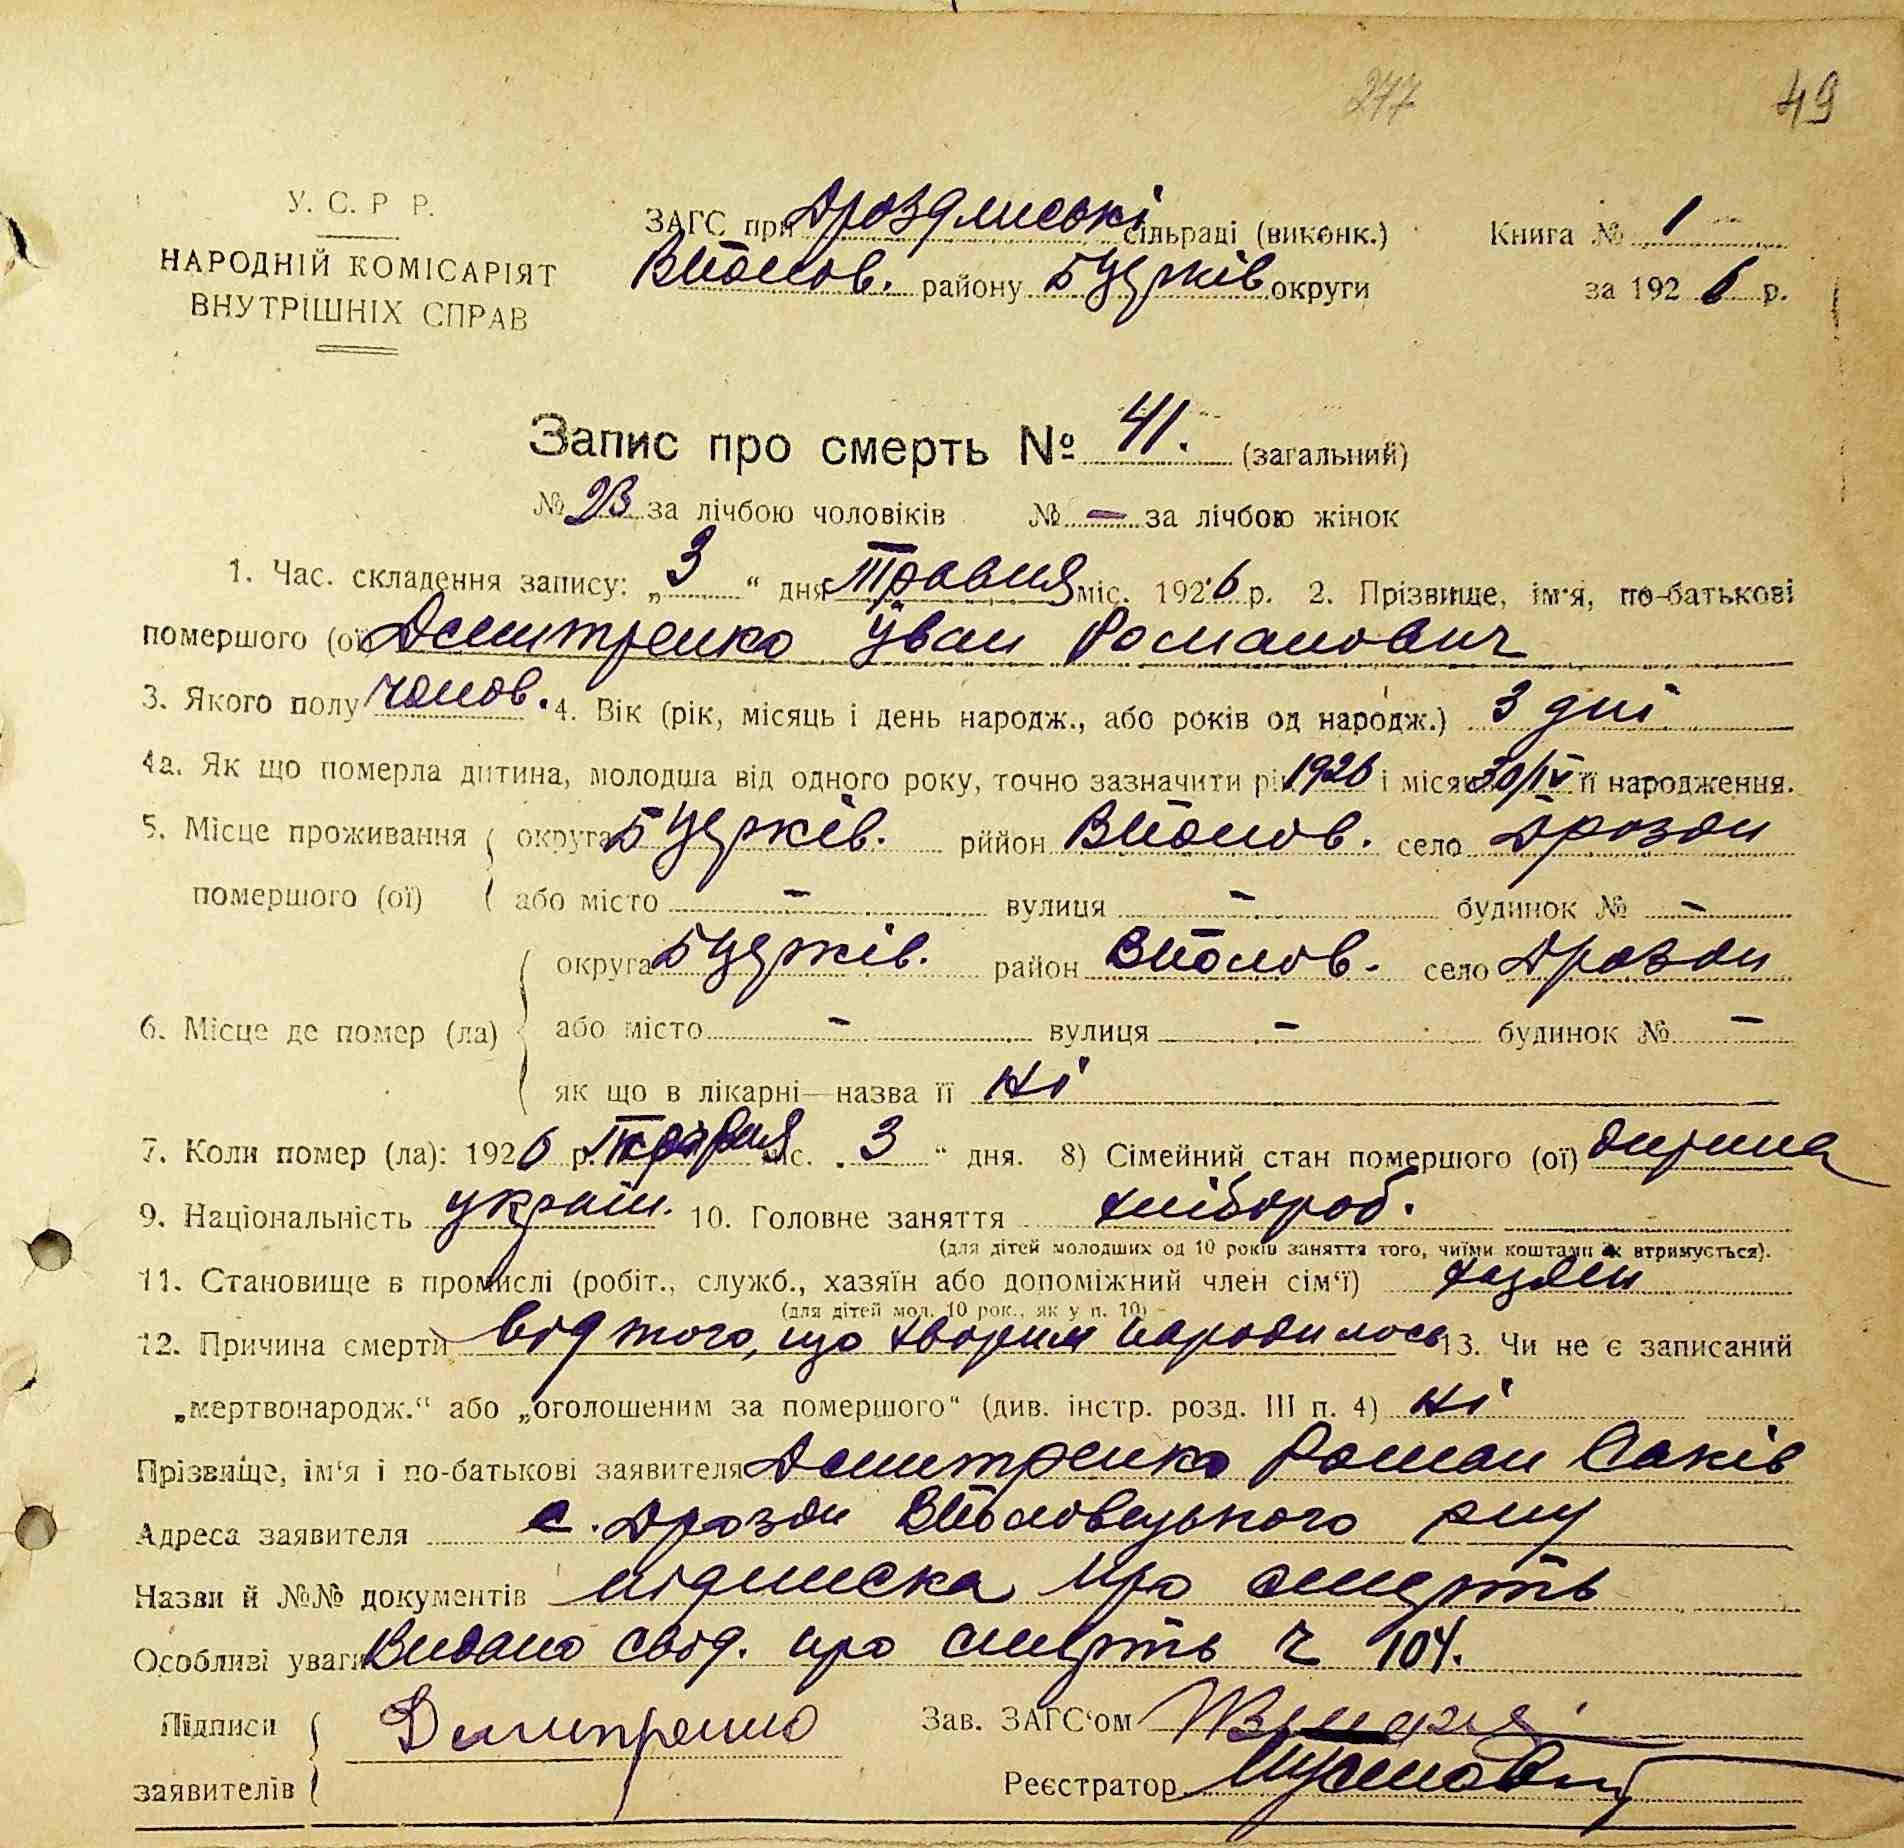 247 49
У. С. Р Р.
НАРОДНІЙ КОМІСАРІЯТ
ВНУТРІШНІХ СПРАВ
ЗАГС при Дроздиські сільраді (виконк.)
Книга № 1
Вполов. району Б Церків округи
за 1926 р.
Запис про смерть № 41. (загальний)
№ 23 за лічбою чоловіків № — за лічбою жінок
1. Час. складення запису: „ 3 “ дня Травня міс. 1926 р. 2. Прізвище, ім'я, по-батькові
помершого (ої) Дмитренко Іван Романович
3. Якого полу чолов. 4. Вік (рік, місяць і день народж., або років од народж.) 3 дні
4а. Як що померла дитина, молодша від одного року, точно зазначити рік 1926 і місяць 30/IV її народження.
5. Місце проживання округа Б Церків. рййон Вполов. село Дрозди
помершого (ої) або місто — вулиця — будинок № —
округа Б Церків. район Вполов. село Дрозди
6. Місце де помер (ла) або місто — вулиця — будинок № —
як що в лікарні—назва її Ні
7. Коли помер (ла): 1926 р. Травня міс. „ 3 “ дня. 8) Сімейний стан помершого (ої) дитина
9. Національність україн. 10. Головне заняття хлібороб.
(для дітей молодших од 10 років заняття того, чиїми коштами їх втримується).
11. Становище в промислі (робіт., служб., хазяїн або допоміжний член сім'ї) хазяїн
(для дітей мол. 10 рок., як у п. 10)
12. Причина смерти від того, що хворим народилось 13. Чи не є записаний
„мертвонародж.“ або „оголошеним за помершого“ (див. інстр. розд. III п. 4) Ні
Прізвище, ім'я і по-батькові заявителя Дмитренко Роман Саків
Адреса заявителя с. Дрозди Вполовецького р-ну
Назви й №№ документів підписка про смерть
Особливі уваги Видано свід. про смерть ч 104.
Підписи Дмитренко Зав. ЗАГС'ом
заявителів Реєстратор